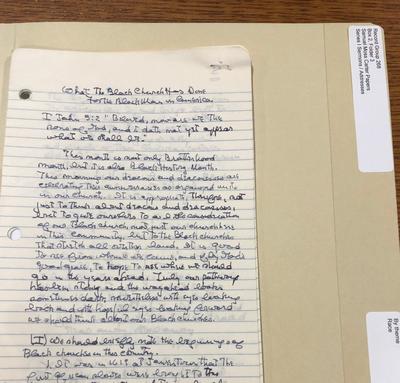 What The Black Church Has Done
For the Black Man in America
I John 3:2 "Beloved, now are we The
sons of God, and it doth not yet appear
what we shall be."
This month is not only Brotherhood
month, but it is also Black History Month.
This morning our deacons and deaconesses are
celebrating this anniversary as organized units
in our church. It is appropriate Therefore, not
just to Think about deacons and deaconesses,
but to give ourselves to a consideration
of our Black church not just our churches
in this community, but to the Black churches
That stretch all across land. It is good
to see from whence we came, and, by God's
good grace, To hope To see where we should
go in the years ahead. Truly our pathway
has been stony and the way ahead looks
sometimes dark, nevertheless with eyes looking
back and with hopeful eyes looking forward
we should think about our Black churches.
(I) We should briefly note the beginnings of
Black churches in this country.
1. It was in 1619 at Jamestown that The
first African slaves were brought to the
Record Group 268
Box 2, Folder 3
Samuel Moss Carter Papers
Series I Sermons / Addresses
By theme
Race